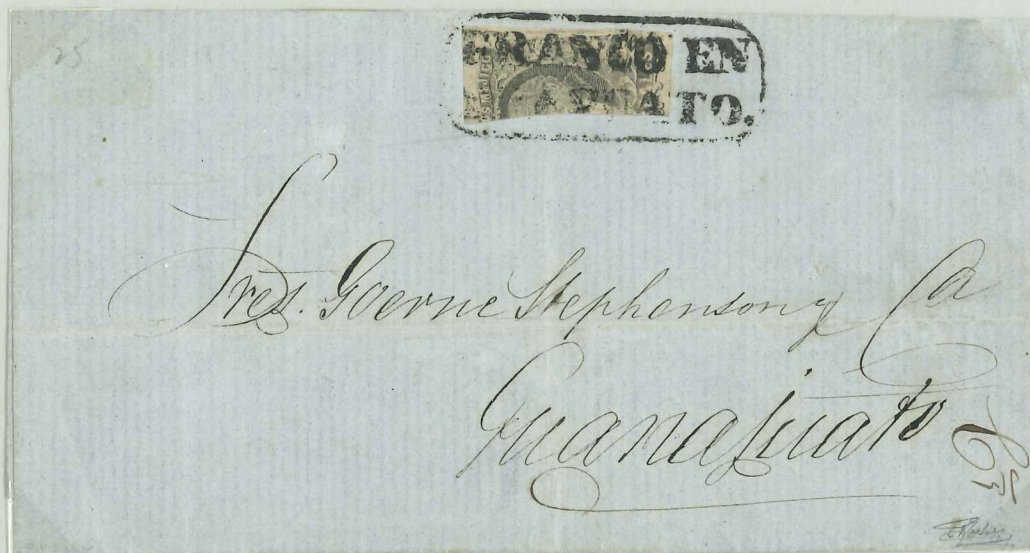 25
FRANCO EN
S MEJICO
ATO.
Sres. Goerne Stephenson y Ca
Guanajuato